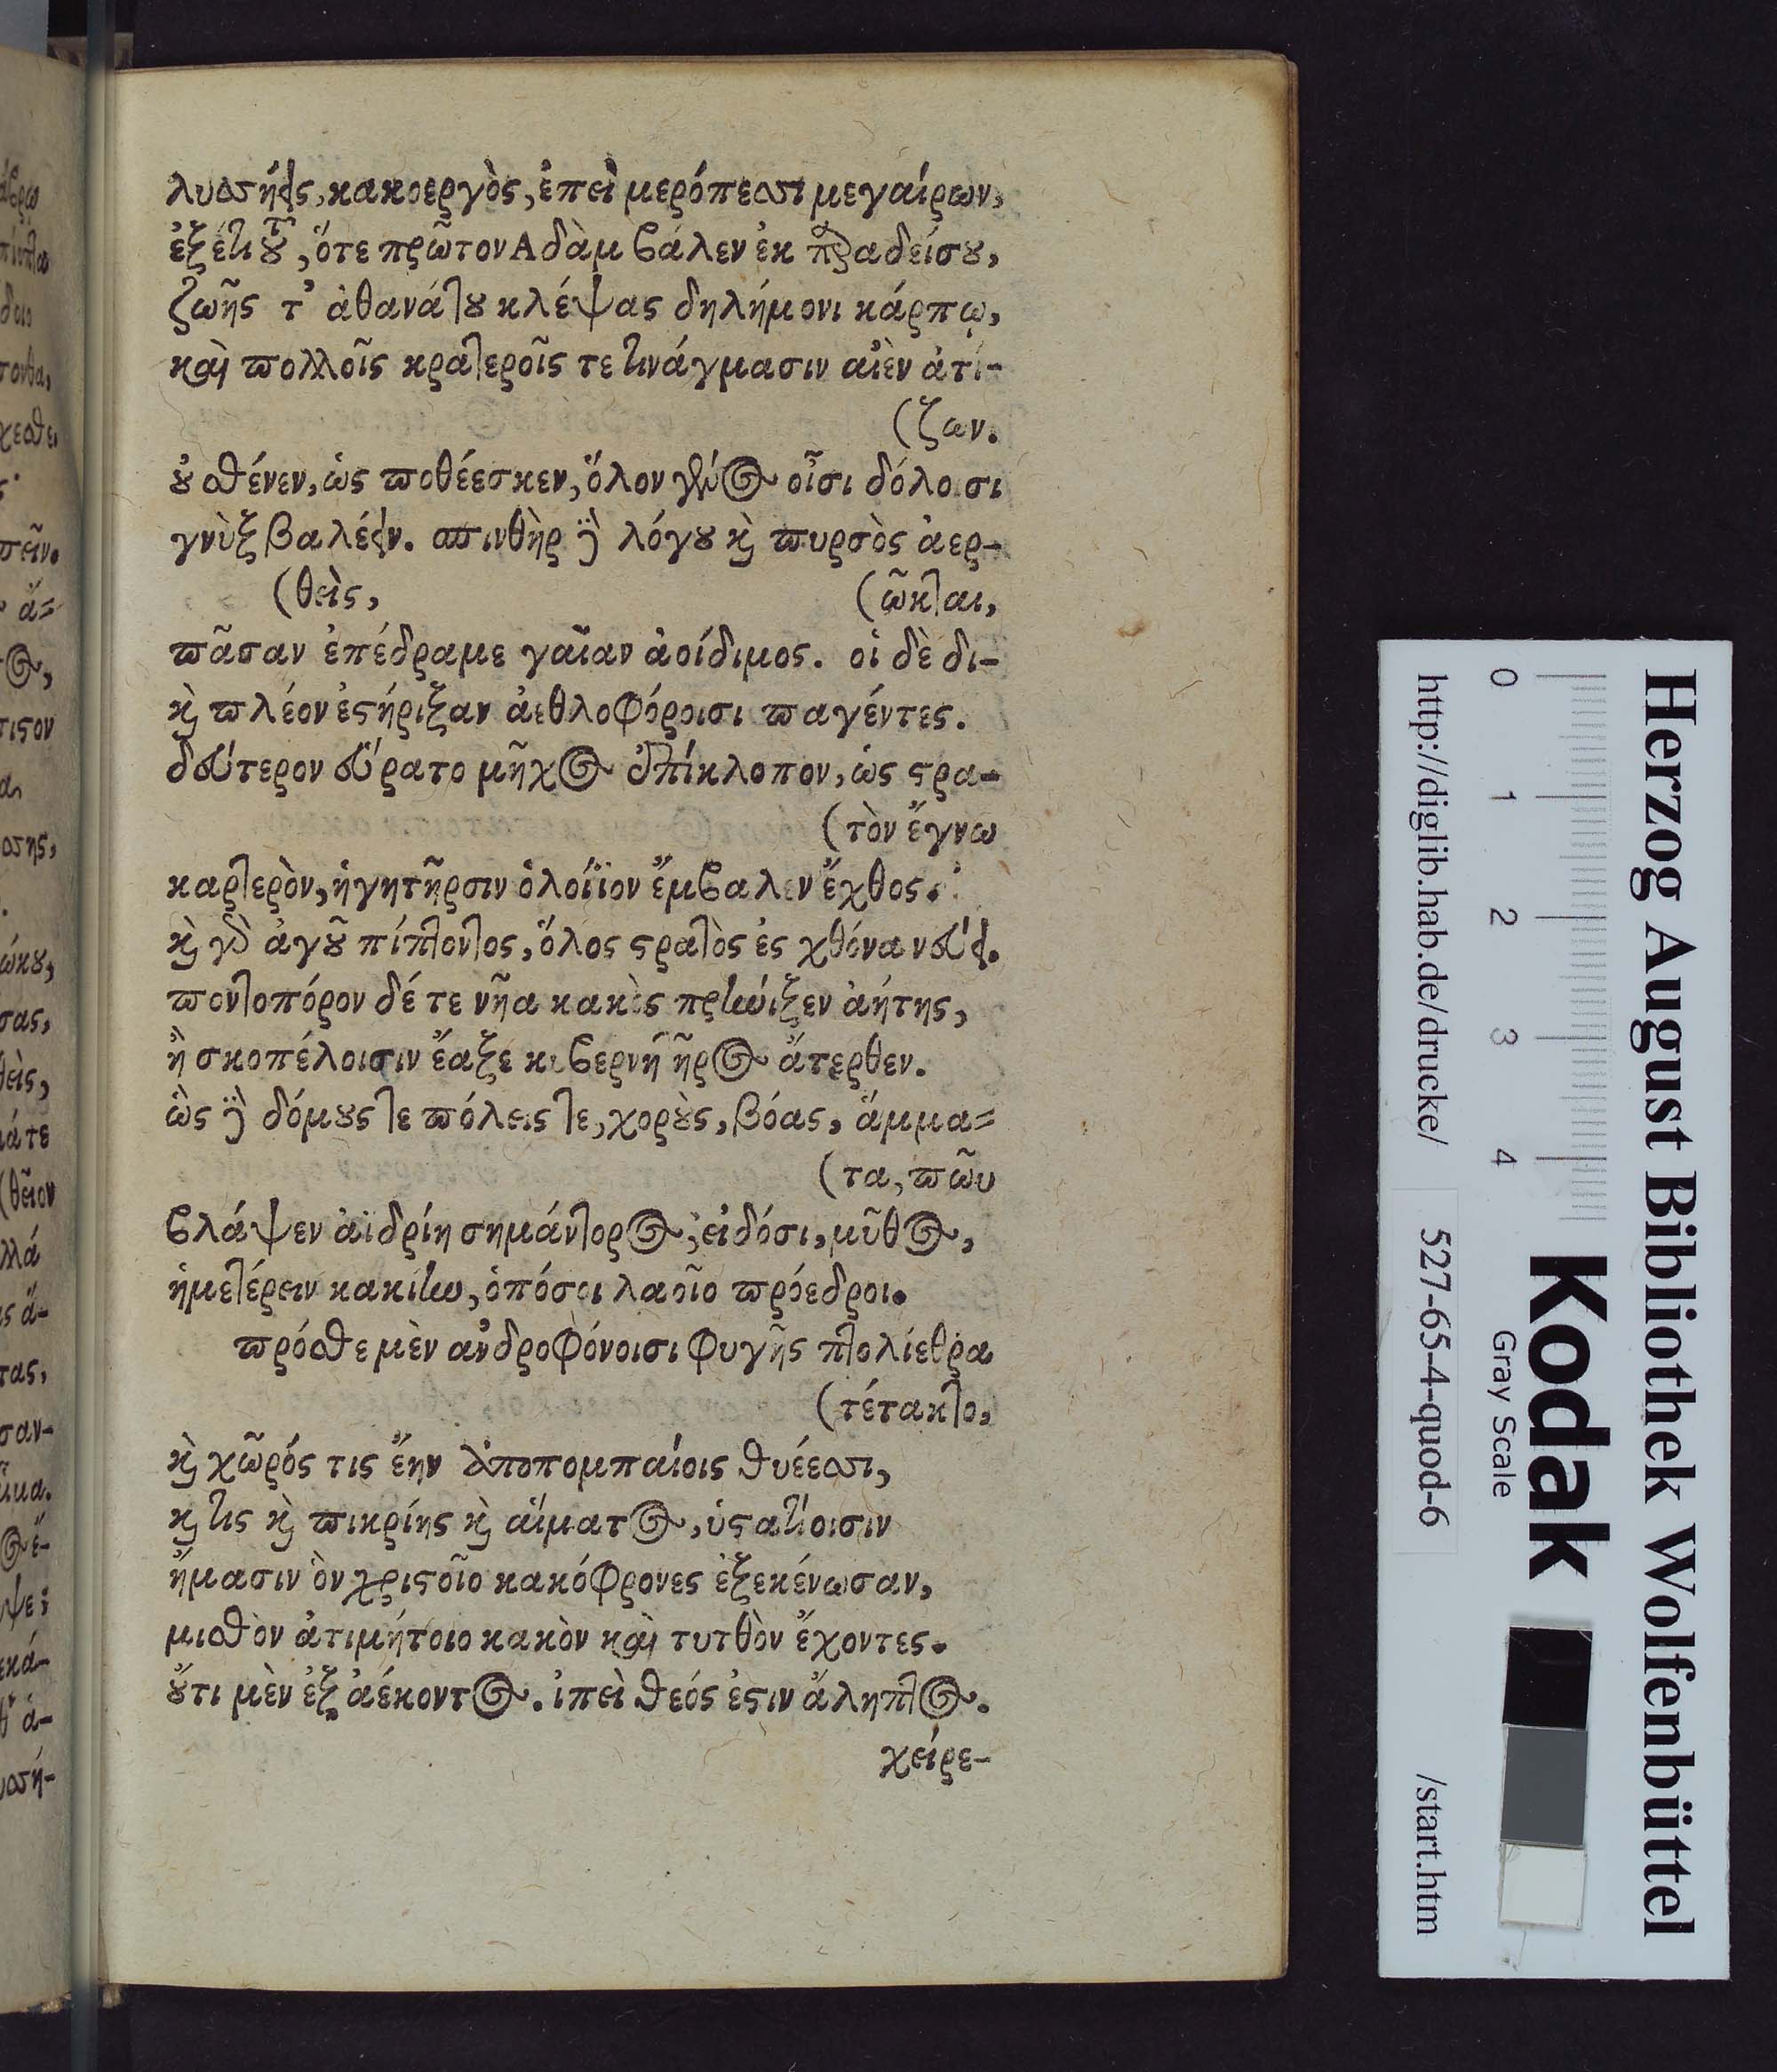 λυσσήεις, κακοεργὸς, ἐπεὶ μερόπεσσι μεγαίρων,
ἐξέτι τοῦ, ὅτε πρῶτον Αδὰμ βάλεν ἐκ παραδείσου,
ζωῆς τ᾽ ἀθανάτου κλέψας δηλήμονι κάρπῳ,
καὶ πολλοῖς κρατεροῖς τε τινάγμασιν αἰὲν ἀτί-
(ζων.
οὐ σθένεν, ὡς ποθέεσκεν, ὅλον γένος οἷσι δόλοισι
γνὺξ βαλέειν. σπινθὴρ γὰρ λόγου καὶ πυρσὸς ἀερ-
(θεὶς, (ῶκται,
πᾶσαν ἐπέδραμε γαῖαν ἀοίδιμος. οἱ δὲ δι-
καὶ πλέον ἐστήριξαν ἀεθλοφόροισι παγέντες.
δεύτερον εὕρατο μῆχος ἐπίκλοπον, ὡς στρα-
(τὸν ἔγνω
καρτερὸν, ἡγητῆρσιν ὀλοίϊον ἔμβαλεν ἔχθος.
καὶ γὰρ ἀγοῦ πίπτοντος, ὅλος στρατὸς ἐς χθόνα νεύει.
ποντοπόρον δέ τε νῆα κακὸς πρήνιξεν ἀήτης,
ἢ σκοπέλοισιν ἔαξε κυβερνητῆρος ἄτερθεν.
ὣς γὰρ δόμους τε πόλεις τε, χοροὺς, βόας, ἅμμα=
(τα, πῶυ
βλάψεν ἀϊδρίη σημάντορος, εἰδόσι, μῦθος,
ἡμετέρειν κακίην, ὁπόσοι λαοῖο πρόεδροι.
πρόσθε μὲν ανδροφόνοισι φυγῆς πτολίεθρα
(τέτακτο,
καὶ χῶρός τις ἔην ἀποπομπαίοις θυέεσσι,
καὶ τὶς καὶ πικρίης καὶ αἵματος, ὑστατίοισιν
ἤμασιν ὃν χριστοῖο κακόφρονες ἐξεκένωσαν,
μισθὸν ἀτιμήτοιο κακὸν καὶ τυτθὸν ἔχοντες.
οὔτι μὲν ἐξ ἀέκοντος. ἐπεὶ θεός ἐστιν ἄληπτος.
χείρε-
Herzog August Bibliothek Wolfenbüttel
Kodak
Gray Scale
0 1 2 3 4
http://diglib.hab.de/drucke/ 527-65-4-quod-6 /start.htm